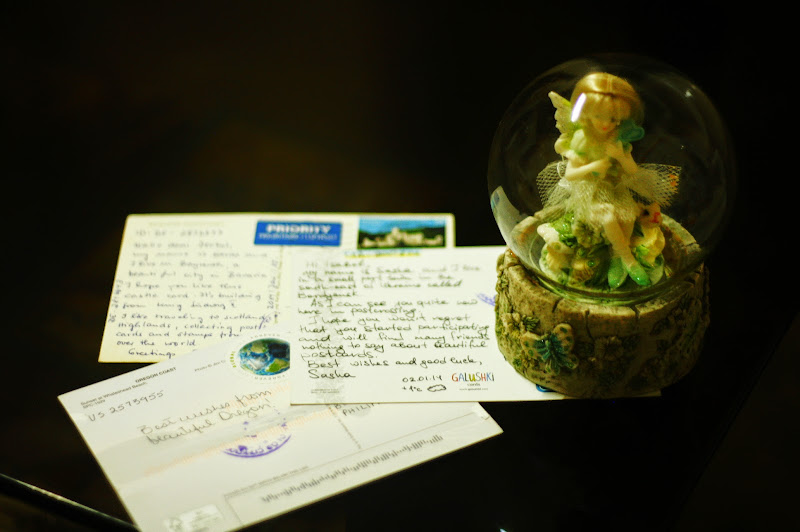 PRIORITY
Hello dear Isabel,
my name is
I live in Bayreuth, a
beautiful city in Bavaria
I hope you like this
castle card. It's building
from King Ludwig
I like traveling to scotland
highlands, collecting post
cards and stamps from
over the world
Greetings,
Hi Isabel
my name is Sasha and I live
in a small port town in the
south-east of Ukraine called
Berdyansk.
As I can see you quite new
here in postcrossing.
I hope you won't regret
that you started participating
and will find many friends
nothing to say about beautiful
postcards.
Best wishes and good luck,
Sasha
02.01.14
+1°C
GALUSHKI
cards
OREGON COAST
US 2575955
Best wishes from
beautiful Oregon